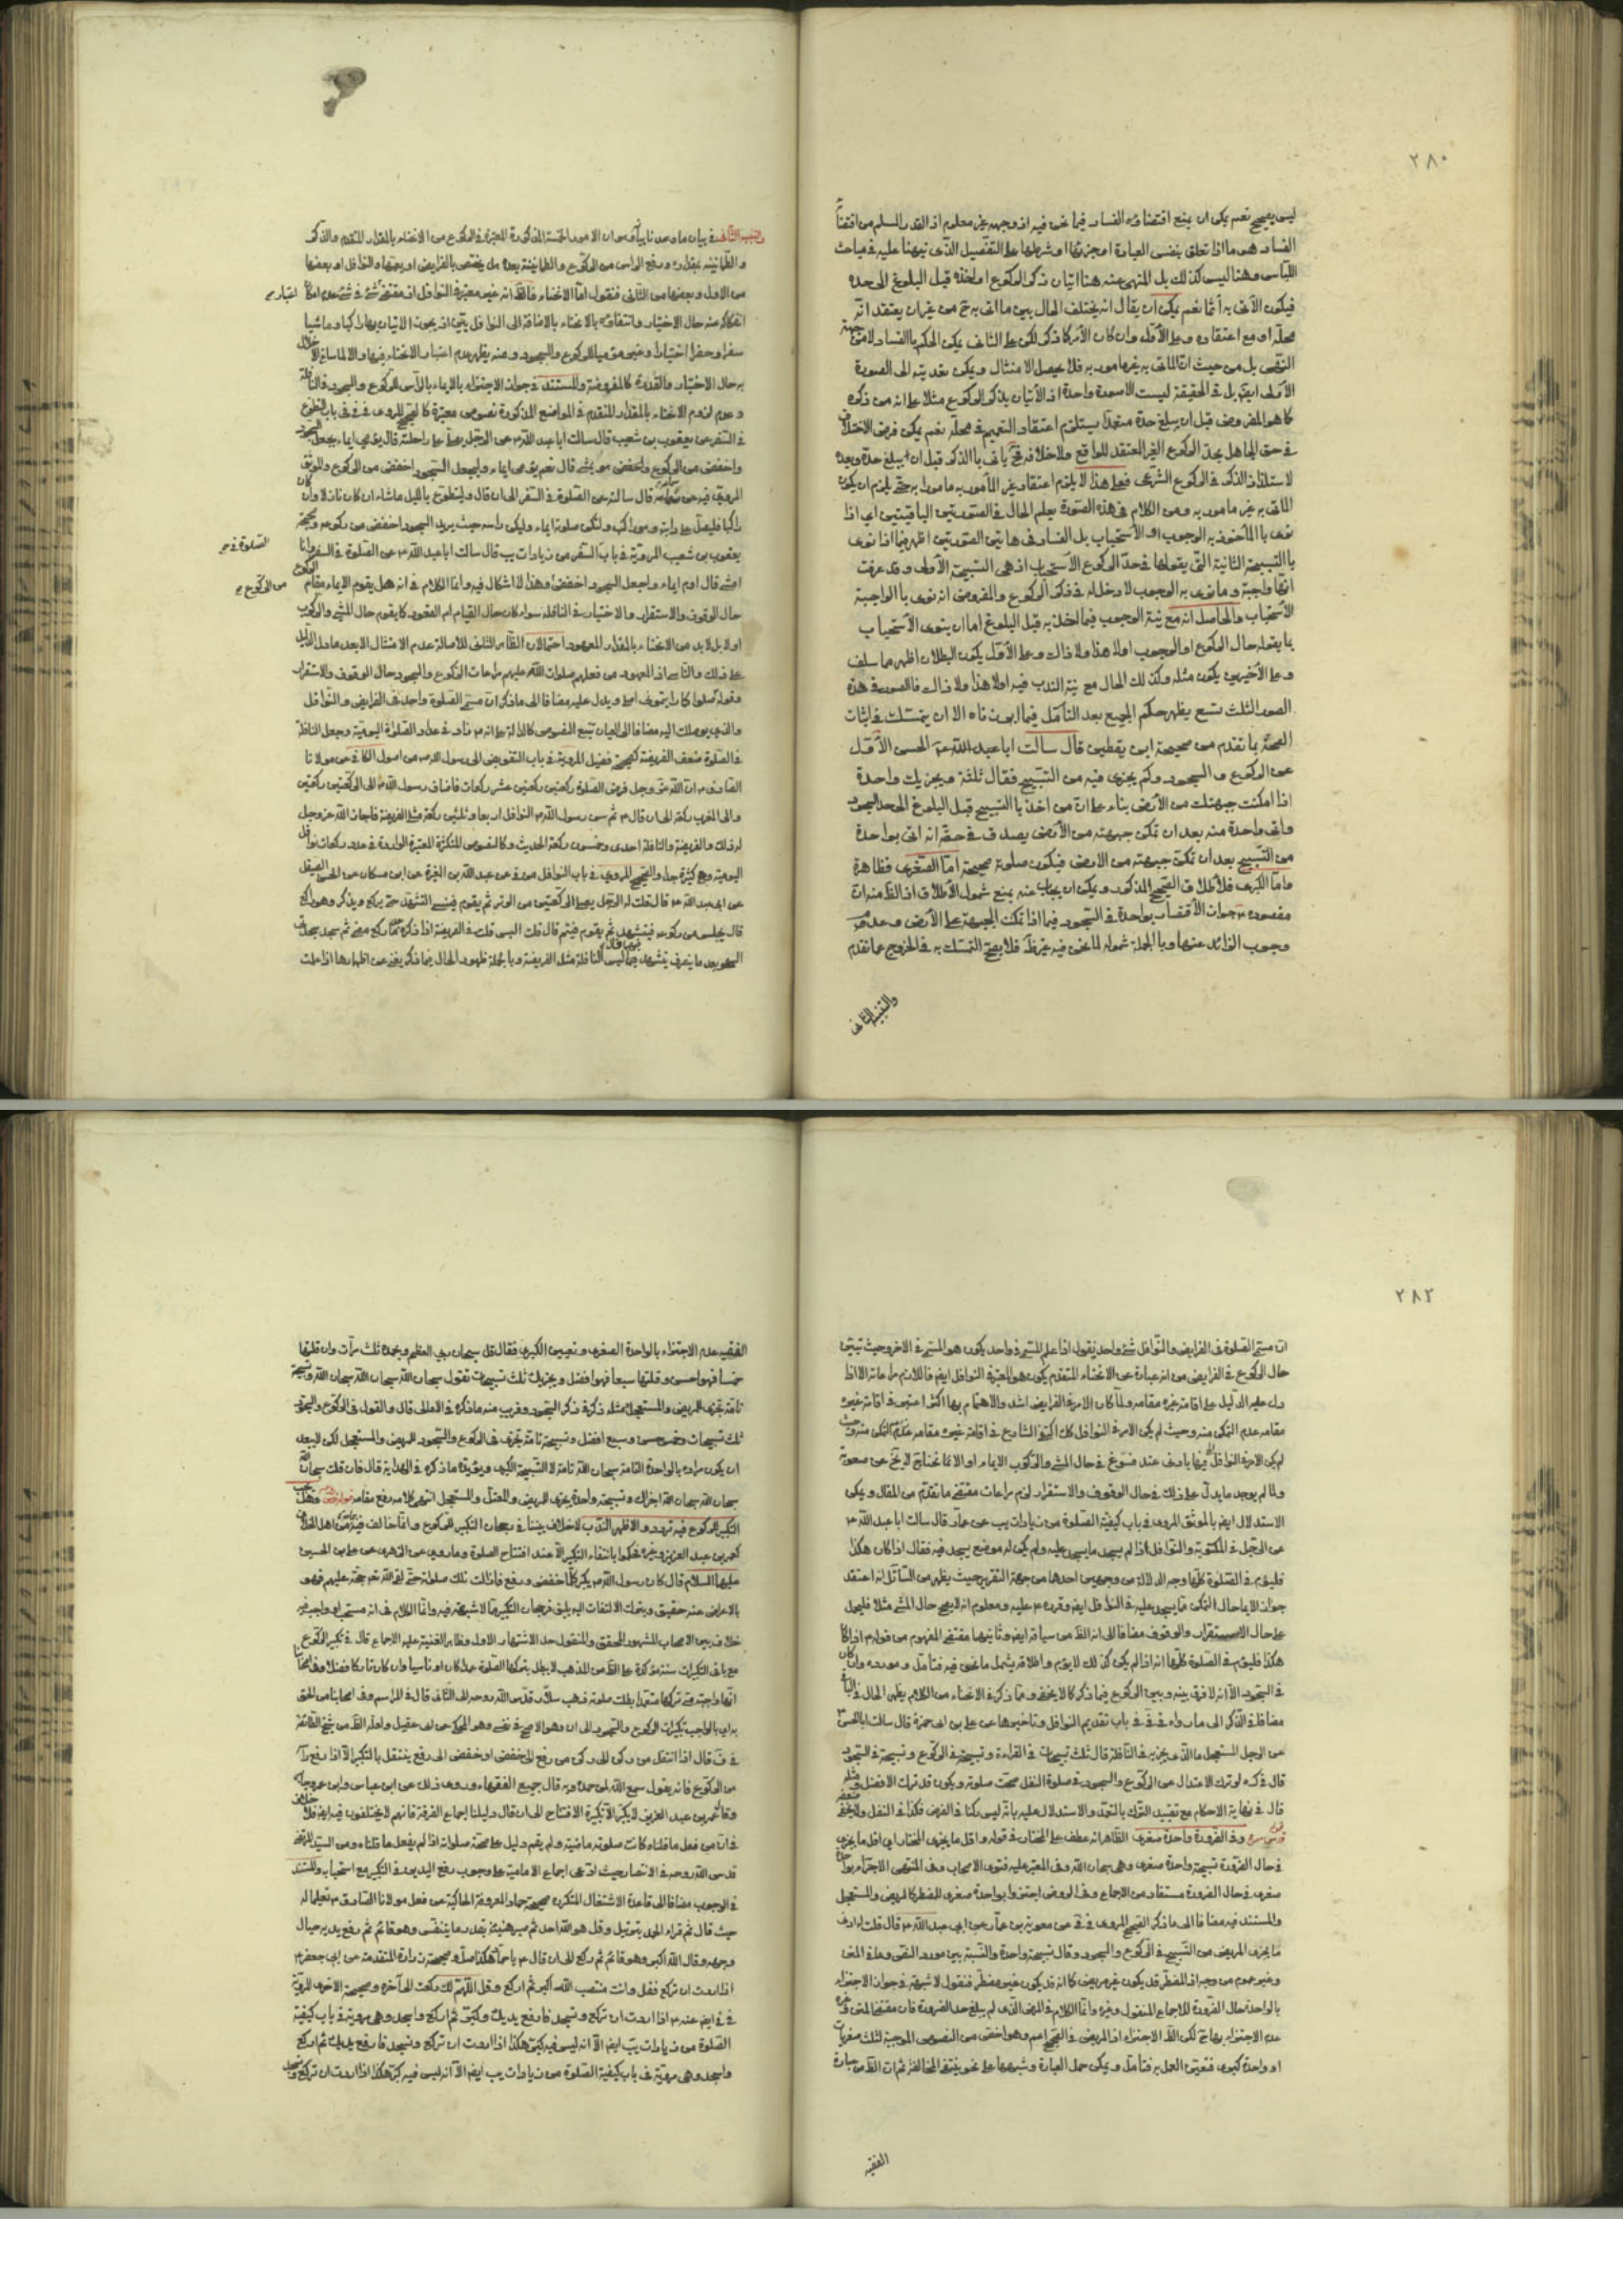 ٢٨٠
ليس بصحيح نعم يمكن ان يمنع اقتضاؤه الفساد فيما نحن فيه اذ وجهه غير معلوم اذ القدر المسلم من اقتضائه
الفساد هو ما اذا تعلق بنفس العبادة او جزئها او شرطها على التفصيل الذى نبهنا عليه فى مباحث
اللباس وهنا ليس كذلك بل المنهى عنه هنا اتيان ذكر الركوع او اخذه قبل البلوغ الى حده
فيكون الآتى به آثما نعم يمكن ان يقال انه يختلف الحال بين ما اتى به ح من غير ان يعتقد انه
محله او مع اعتقاده وعلى الأول وان كان الأمر كما ذكر لكن على الثانى يمكن الحكم بالفساد لا من جهة
النهى بل من حيث ان المأتى به غير مأمور به فلا يحصل الامتثال ويمكن تعديته الى الصورة
الأولى ايضا بل فى الحقيقة ليست الا صورة واحدة اذ الأتيان بذكر الركوع مثلا على انه من ذكره
كما هو المفروض قبل ان يبلغ حده متعمدا يستلزم اعتقاد التعميم فى محله نعم يمكن فرض الاختلاف
فى حق الجاهل بحد الركوع الغير المعتقد للواقع ولا خلافه فح يأتى بالذكر قبل ان يبلغ حده وبعده
لاستلذاذ الذكر فى الركوع الشرعى فعلى هذا لا يلزم اعتقاد غير المأمور به مأمورا به حتى يلزم ان يكون
المأتى به غير مأمور به ومن الكلام فى هذه الصورة يعلم الحال فى الصورتين الباقيتين اى اذا
نوى بالمأخوذ به الوجوب او الأستحباب بل الفساد فى هاتين الصورتين اظهر فيما اذا نوى
بالتسبيحة الثانية التى يقولها فى حد الركوع الأستحباب اذ هى التسبيحة الأولى وقد عرفت
انها واجبة وما نوى به الوجوب لا دخل له فى ذكر الركوع والمفروض انه نوى بالواجبة
الأستحباب والحاصل انه مع نية الوجوب فيما اخذ به قبل البلوغ اما ان ينوى الأستحباب
بما يقوله حال الركوع او الوجوب اولا هذا ولا ذاك وعلى الأول يكون البطلان اظهر مما سلف
وعلى الأخيرين يكون مثله وكذلك الحال مع نية الندب فيه اولا هذا ولا ذاك فالصور فى هذه
الصور الثلث تسع يظهر حكم الجميع بعد التأمل فيما ابرزناه الا ان يتمسك فى اثبات
الصحة بما تقدم من صحيحة ابن يقطين قال سالت ابا عبد الله ع الحسن الأول
عن الركوع والسجود وكم يجزى فيه من التسبيح فقال ثلثة ويجزيك واحدة
اذا امكنت جبهتك من الأرض بناء على ان من اخذ بالتسبيح قبل البلوغ الى حد السجود
واتى واحدة منه بعد ان تمكن جبهته من الأرض يصدق فى حقه انه اتى بواحدة
من التسبيح بعد ان تمكن جبهته من الارض فيكون صلوته صحيحة اما الصغرى فظاهرة
واما الكبرى فلأطلاق الصحيح المذكور ويمكن ان يجاب عنه بمنع شمول الأطلاق اذ الظ منه ان
مقصوده ع جواز الأقتصار بواحدة فى السجود فيما اذا تمكنت الجبهة على الأرض وعدم
وجوب الزائد عنها وبالجملة شموله لما نحن فيه غير ظ فلا يصح التمسك به فى الخروج عما تقدم
والتنبيه الثانى
والتنبيه الثانى فى بيان ما وعدنا بيانه وهو ان الامور الخمسة المذكورة المعتبرة فى الركوع من الانحناء بالمقدار المتقدم والذكر
والطمأنينة بقدره ورفع الرأس من الركوع والطمأنينة بعده هل يختص بالفرايض او يعمها والنوافل او بعضها
من الاول وبعضها من الثانى فنقول اما الانحناء فالظ انه غير معتبر فى النوافل اذ مقتضى شئ فى شئ عدم امكان
اعتبار صح
انفكاكه عنه حال الاختيار وانتفاؤه بالانحناء بالاضافة الى النوافل بيّن اذ يجوز الاتيان بها راكبا وماشيا
سفرا وحضرا اختيارا وغيره موميا للركوع والسجود ومنه يظهر عدم اعتبار الانحناء فيها والا لما ساغ الاخلال
به حال الاختيار والقدرة كالمفروضة والمستند فى جواز الاجتزاء بالايماء بالرأس للركوع والسجود فى النافلة
وعدم لزوم الانحناء بالمقدار المتقدم فى المواضع المذكورة نصوص معتبرة كالصحيح المروى فى فى باب التطوع
فى السفر عن يعقوب بن شعيب قال سالت ابا عبد الله ع عن الرجل يصلى على راحلته قال يومى ايماء يجعل السجود
اخفض من الركوع قال نعم يومى ايماء وليجعل السجود اخفض من الركوع والموثق
المروى فيه عن سماعة قال سالته عن الصلوة فى السفر الى ان قال وليتطوع بالليل ماشاء ان كان نازلا وان كان
راكبا فليصل على دابته وهو راكب ولتكن صلوته ايماء وليكن راسه حيث يريد السجود اخفض من ركوعه وصحيحة
يعقوب بن شعيب المروية فى باب السفر من زيادات يب قال سالت ابا عبد الله ع عن الصلوة فى السفر وانا
الصلوة فى صح
امشى قال اوم ايماء واجعل السجود اخفض وهذا لا اشكال فيه وانما الكلام فى انه هل يقوم الايماء مقام الركوع
من الركوع صح
حال الوقوف والاستقرار والاختيار فى النافلة سواء كان حال القيام ام القعود كما يقوم حال المشى والركوب
اولا بل لا بد من الانحناء بالمقدار المعهود احتمالان الظاهر الثانى لأصالة عدم الامتثال الا بعد ما دل الدليل
على ذلك والتأسى اذ المعهود من فعلهم صلوات الله عليهم مراعات الركوع والسجود حال الوقوف والاستقرار
وقوله صلوا كما رايتمونى اصلى ويدل عليه مضافا الى ما ذكر ان مسمى الصلوة واحد فى الفرايض والنوافل
والذى يوصلك اليه مضافا الى العيان تتبع النصوص كالدالة على انه ع زاد فى عداد الصلوة اليومية وجعل النافلة
فى الصلوة ضعف الفريضة كصحيحة فضيل المروية فى باب التفويض الى رسول الله ص من اصول الكافى عن مولانا
الصادق ع ان الله عز وجل فرض الصلوة ركعتين ركعتين عشر ركعات فاضاف رسول الله ص الى الركعتين ركعتين
والى المغرب ركعة الى ان قال ع ثم سن رسول الله ص النوافل اربعا وثلثين ركعة مثلى الفريضة فاجاز الله عز وجل
له ذلك والفريضة والنافلة احدى وخمسون ركعة الحديث وكالنصوص المتكثرة المعتبرة الواردة فى عدد ركعات نوافل
اليومية وهى كثيرة جدا والصحيح المروى فى باب النوافل من فى عن عبد الله بن المغيرة عن ابن مسكان عن الحسن الصيقل
عن ابى عبد الله ع قال قلت له الرجل يصلى الركعتين من الوتر ثم يقوم فينسى التشهد حتى يركع ويذكر وهو راكع
قال يجلس من ركوعه فيتشهد ثم يقوم فيتم قال قلت اليس قلت فى الفريضة اذا ذكره بعد ما ركع مضى ثم سجد سجدتى
السهو بعد ما ينصرف يتشهد فيهما قال ليس النافلة مثل الفريضة وبالجملة ظهور الحال فيما ذكر يغنى عن اظهارها اذا علمت
٢٨٢
ان مسمى الصلوة فى الفرايض والنوافل شئ واحد يقول اذا علم المسمى فى واحد يكون هو المسمى فى الاخر وحيث تبين
حال الركوع فى الفرايض من انه عبارة عن الانحناء المتقدم يكون هو المعتبر فى النوافل ايضا فاللازم مراعاته الا اذا
دل عليه الدليل على اقامة غيره مقامه ولما كان الامر فى الفرايض اشد والاهتمام بها اكثر اعتبر فى اقامة غيره
مقامه عدم التمكن منه وحيث لم يكن الامر فى النوافل كك اكتفى الشارع فى اقامة غيره مقامه عدم التمكن منه وحيث
لم يكن الامر فى النوافل فيها بادون عنه فسوغ فى حال المشى والركوب الايماء او الانحناء لا يخ عن صعوبة
ولما لم يوجد ما يدل على ذلك فى حال الوقوف والاستقرار لزم مراعات مقتضى ما تقدم من المقال ويمكن
الاستدلال ايضا بالموثق المروى فى باب كيفية الصلوة من زيادات يب عن عمار قال سالت ابا عبد الله ع
عن الرجل فى المكتوبة والنوافل اذا لم يجد ما يسجد عليه ولم يكن له موضع يسجد فيه فقال اذا كان هكذا
فليوم فى الصلوة كلها وجه الدلالة من وجهين احدها من جهة التقرير حيث يظهر من السائل انه اعتقد
جواز الايماء حال التمكن مما يسجد عليه فى النوافل ايضا وقرره ع عليه ومعلوم انه لا يصح حال المشى مثلا فليحمل
على حال الاستقرار والوقوف مضافا الى انه الظ من سياقه ايضا وثانيها مقتضى المفهوم من قوله ع اذا كان
هكذا فليوم فى الصلوة كلها انه اذا لم يكن كذلك لا يوم واطلاقه يشمل ما نحن فيه فتامل ومورده وان كان
فى السجود الا انه لا فرق بينه وبين الركوع فيما ذكر كما لا يخفى ومما ذكر فى الانحناء من الكلام يظهر الحال فى الباقى
مضافا فى الذكر الى ما رواه فى فى باب تقديم النوافل وتاخيرها عن على بن ابى حمزة قال سالت ابا الحسن ع
عن الرجل المستعجل ما الذى يجزيه فى النافلة قال ثلث تسبيحات فى القراءة وتسبيحة فى الركوع وتسبيحة فى السجود
قال فى كره لو ترك الاعتدال من الركوع والسجود فى صلوة النفل صحت صلوته ويكون قد ترك الافضل ومثله
قال فى نهاية الاحكام مع تقييد الترك بالتعمد والاستدلال عليه بانه ليس ركنا فى الفرض فكذا فى النفل ولا يخفى ضعفه
قوله قدس سره وفى الضرورة واحدة صغرى الظاهر انه عطف على المختار فى قوله واقل ما يجزى المختار اى اقل ما يجزى
فى حال الضرورة تسبيحة واحدة صغرى وهى سبحان الله وفى المعتبر عليه فتوى الاصحاب وفى المنتهى الاجتزاء بواحدة
صغرى فى حال الضرورة مستفاد من الاجماع وفى الروض اجتزوا بواحدة صغرى للمضطر كالمريض والمستعجل
والمستند فيه مضافا الى ما ذكر الصحيح المروى فى فى عن معوية بن عمار عن ابى عبد الله ع قال قلت له ادنى
ما يجزى المريض من التسبيح فى الركوع والسجود وقال تسبيحة واحدة والنسبة بين مورد النص وهذا المعنى
وغيره عموم من وجه اذ المضطر قد يكون غير مريض كما انه قد يكون غيره مضطر فنقول لا شبهة فى جواز الاجتزاء
بالواحدة حال الضرورة للاجماع المنقول وغيره وانما الكلام فى المرض الذى لم يبلغ حد الضرورة فان مقتضى المتن وغيره
عدم الاجتزاء بها ح لكن الظ الاجتزاء اذ المريض فى الصحيح اعم وهو اخص من النصوص الموجبة لثلث صغريات
او واحدة كبرى فتعين العمل به فتامل ويمكن حمل العبارة وشبهها على نحو ينتفى المخالفة ثم ان الظ من عبارة
الفقيه
الفقيه عدم الاجتزاء بالواحدة الصغرى وتعيين الكبرى فقال قل سبحان ربى العظيم وبحمده ثلث مرات وان قلتها
خمسا فهو احسن وقلتها سبعا فهو افضل ويجزيك ثلث تسبيحات تقول سبحان الله سبحان الله سبحان الله وتسبيحة
تامة تجزى للمريض والمستعجل مثله ذكر فى ذكر السجود وقريب منه ما ذكره فى الامالى قال والقول فى الركوع والسجود
ثلث تسبيحات وخمس احسن وسبع افضل وتسبيحة تامة تجزى فى الركوع والسجود للمريض والمستعجل لكن لا يبعد
ان يكون مراده بالواحدة التامة سبحان الله تامة لا التسبيحة الكبرى ويؤيده ما ذكره فى الهداية قال فان قلت سبحان الله
سبحان الله سبحان الله اجزاك وتسبيحة واحدة تجزى للمريض والمعتل والمستعجل انتهى كلامه رفع مقامه قوله قدس سره وهل يجب
التكبير للركوع فيه تردد والاظهر الندب لا خلاف بيننا فى رجحان التكبير للركوع وانما خالف فيه بعض من اهل الخلاف
كعمر بن عبد العزيز وغيره فحكموا بانتفاء التكبير الا عند افتتاح الصلوة وما روى عن الزهرى عن على بن الحسين
عليهما السلام قال كان رسول الله ص يكبر كلما خفض ورفع فما زالت تلك صلوته حتى لقى الله عز وجل حجة عليهم فهو
بالاعراض عنه حقيق وبترك الالتفات اليه يليق فرجحان التكبير مما لا شبهة فيه وانما الكلام فى انه مستحب او واجب فيه
خلاف بين الاصحاب المشهور المحقق والمنقول حد الاشتهار الاول وظاهر الغنية عليه الاجماع قال فى تكبير الركوع
مع باقى التكبيرات سنة مؤكدة على الظ من المذهب لا يبطل بتركها الصلوة عمدا كان او ناسيا وان كان تاركا فضلا وفى اصحابنا
انها واجبة متى تركها متعمدا بطلت صلوته فذهب سلار قدس الله روحه الى الثانى قال فى المراسم وفى اصحابنا من الحق
به اى بالواجب تكبيرات الركوع والسجود الى ان وهو الاصح فى نفسى وهو المحكى عن ابن ابى عقيل ولعله الظ من شيخ الطائفة
فى ف قال اذا انتقل من ركن الى ركن من رفع الى خفض او خفض الى رفع ينتقل بالتكبير الا اذا رفع رأسه
من الركوع فانه يقول سمع الله لمن حمده وبه قال جميع الفقهاء وروى ذلك عن ابن عباس وابن عمر وجابر
وقال عمر بن عبد العزيز لا يكبر الا تكبيرة الافتتاح الى ان قال دليلنا اجماع الفرقة فانهم لا يختلفون فيه ايضا فلا خلاف
فى ان من فعل ما قلناه كانت صلوته ماضية ولم يقم دليل على صحة صلوته اذا لم يفعل ما قلناه ومن السيد المرتضى
قدس الله روحه فى الانتصار حيث ادعى اجماع الامامية على وجوب رفع اليدين فى التكبير مع استحبابه والمستند
فى الوجوب مضافا الى قاعدة الاشتغال المتكررة صحيحة حماد المعروفة الحاكية عن فعل مولانا الصادق ع تعليما له
حيث قال ثم قراء الحمد بترتيل وقل هو الله احد ثم صبر هنيئة بقدر ما يتنفس وهو قائم ثم رفع يديه حيال
وجهه وقال الله اكبر وهو قائم ثم ركع الى ان قال ع يا حماد هكذا صل وصحيحة زرارة المتقدمة عن ابى جعفر ع
اذا اردت ان تركع فقل وانت منتصب الله اكبر ثم اركع وقل اللهم لك ركعت الى آخره وصحيحة الاخرى المروية
فى فى ايضا عنه ع اذا اردت ان تركع وتسجد فارفع يديك وكبر ثم اركع واسجد وهى مروية فى باب كيفية
الصلوة من زيادات يب ايضا الا انه ليس فيه كبر هكذا اذا اردت ان تركع وتسجد فارفع يديك ثم اركع
واسجد وهى مروية فى باب كيفية الصلوة من زيادات يب ايضا الا انه ليس فيه كبر هكذا اذا اردت ان تركع وتسجد